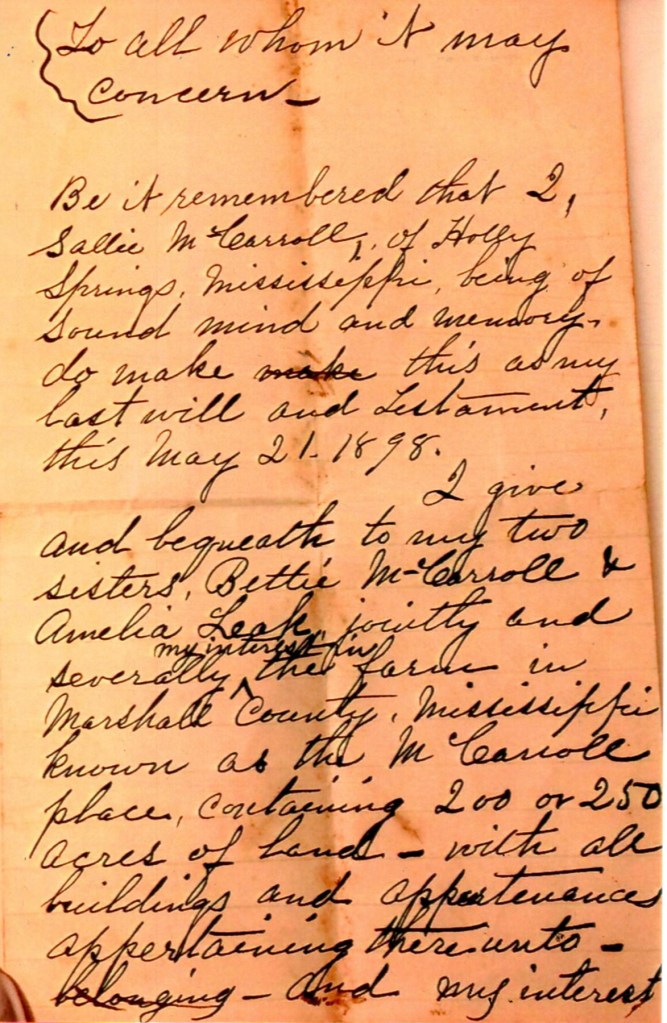 To all whom it may
concern —
Be it remembered that I,
Sallie McCarroll, of Holly
Springs, Mississippi, being of
sound mind and memory,
do make make this as my
last will and testament,
this May 21. 1898.
I give
and bequeath to my two
sisters, Bettie McCarroll &
Amelia Leak jointly and
my interest in
severally ^ the farm in
Marshall County, Mississippi
known as the McCarroll
place, containing 200 or 250
acres of land — with all
buildings and appurtenances
appertaining thereunto —
belonging — and my interest